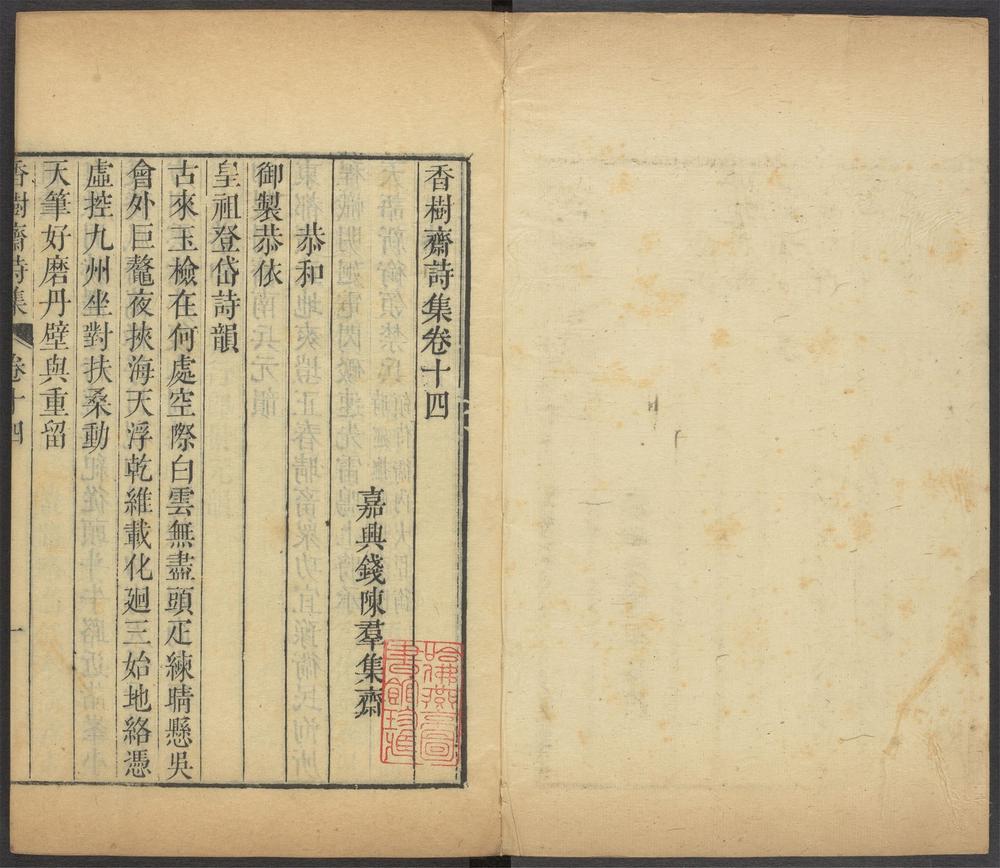 香樹齋詩集卷十四
嘉興錢陳羣集齋
恭和
御製恭依
皇祖登岱詩韻
古來玉檢在何處空際白雲無盡頭疋練晴懸吳
會外巨鼇夜挾海天浮乾維載化廻三始地絡憑
虛控九州坐對扶桑動
天筆好磨丹壁與重留
香樹齋詩集
卷十四
一
哈佛燕京圖
書館珍藏